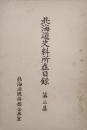 北海道史料所在目録
第三集
北海道総務部企画室